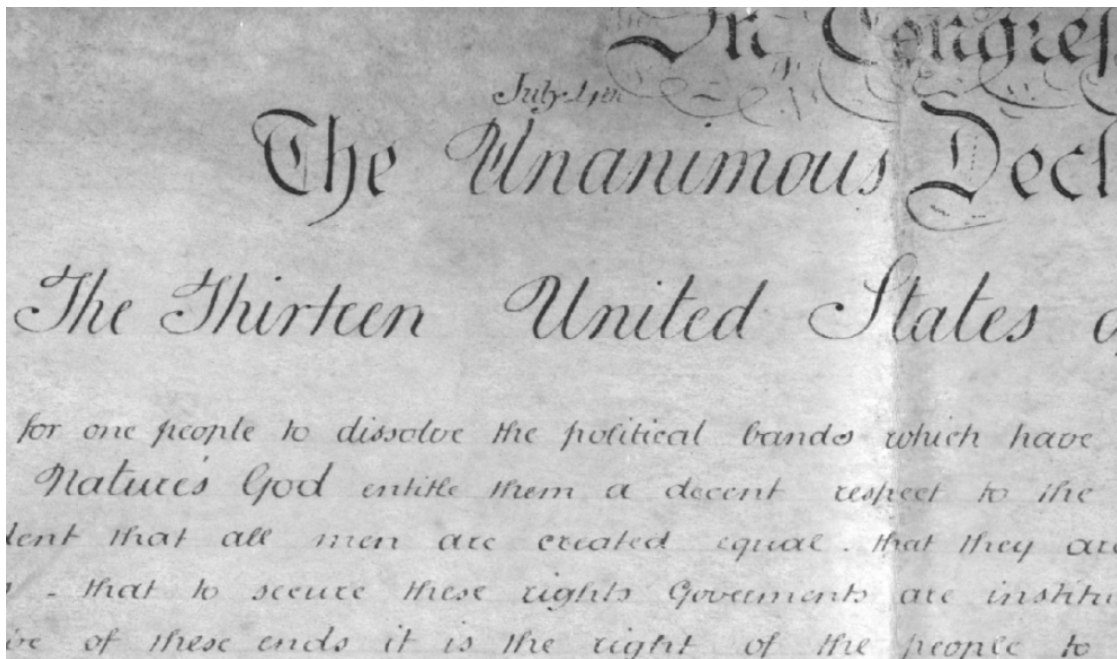 In Congres
July 4th
The Unanimous Decl
The Thirteen United States o
for one people to dissolve the political bands which have
Nature's God entitle them a decent respect to the
dent that all men are created equal. that they are
- that to secure these rights Goverments are institu
of these ends it is the right of the people to